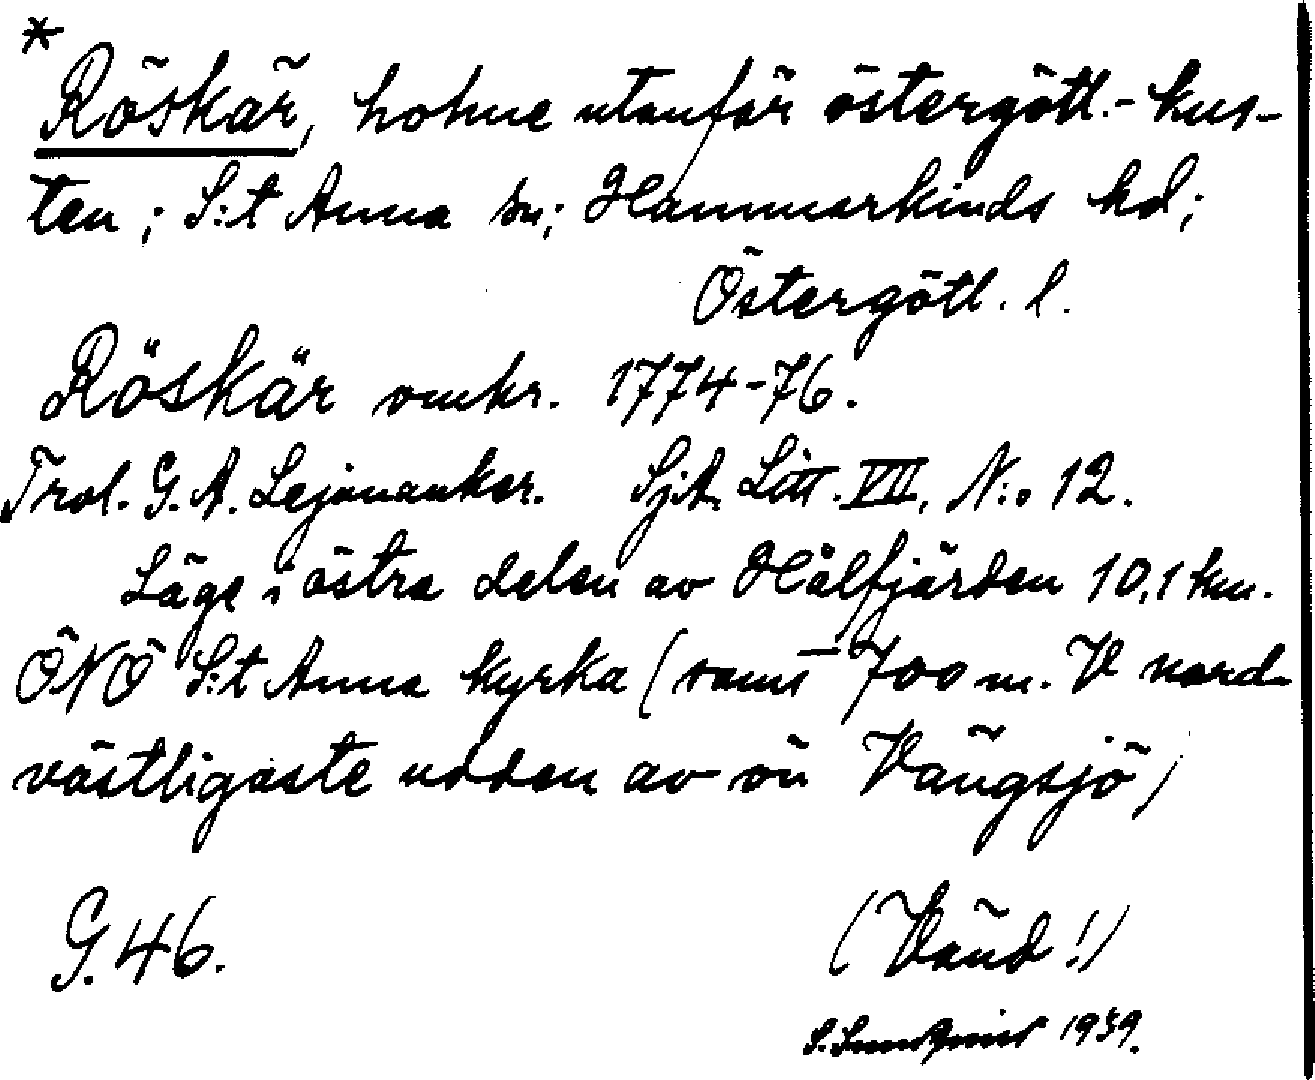 *
Röskär, holme utanför östergötl.-kus-
ten; S:t Anna sn; Hammarkinds hd;
Östergötl. l.
Röskär omkr. 1774-76.
Trol. G. A. Lejonanker. SjA. Litt. VII, N:o 12.
Läge i östra delen av Hålfjärden 10,1 km.
ÖNÖ S:t Anna kyrka (samt 700 m. V nord-
västligaste udden av ön Vängsjö)
G. 46.
(Vänd!)
S. Sundqvist 1939.